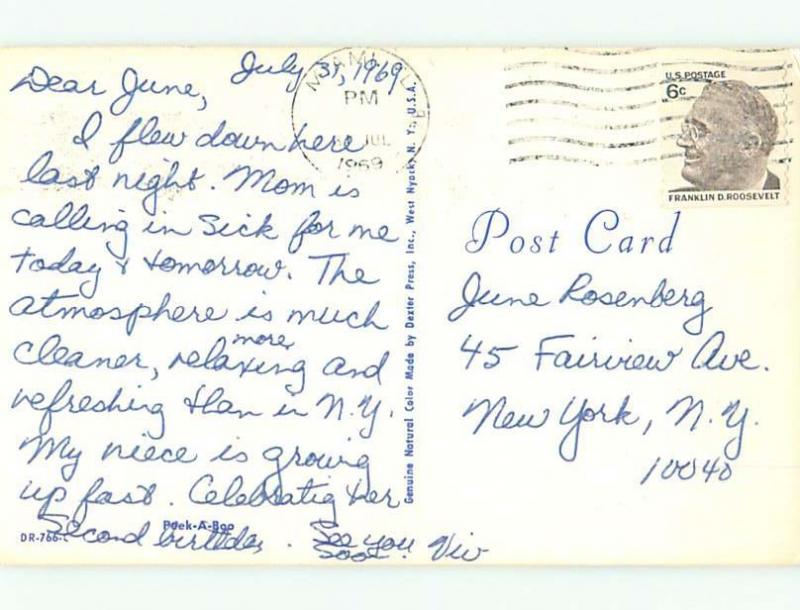 July 31, 1969
Dear June,
I flew down here
last night. Mom is
calling in sick for me
today & tomorrow. The
atmosphere is much
cleaner, more relaxing and
refreshing than in N.Y.
My niece is growing
up fast. Celebratig her
second birthday. See you
soon! Viv
Peek-A-Boo
DR-766-C
Genuine Natural Color Made by Dexter Press, Inc., West Nyack, N. Y., U.S.A.
MIAMI, FL
PM
JUL
1969
U.S. POSTAGE
6c
FRANKLIN D. ROOSEVELT
Post Card
June Rosenberg
45 Fairview Ave.
New York, N.Y.
10040